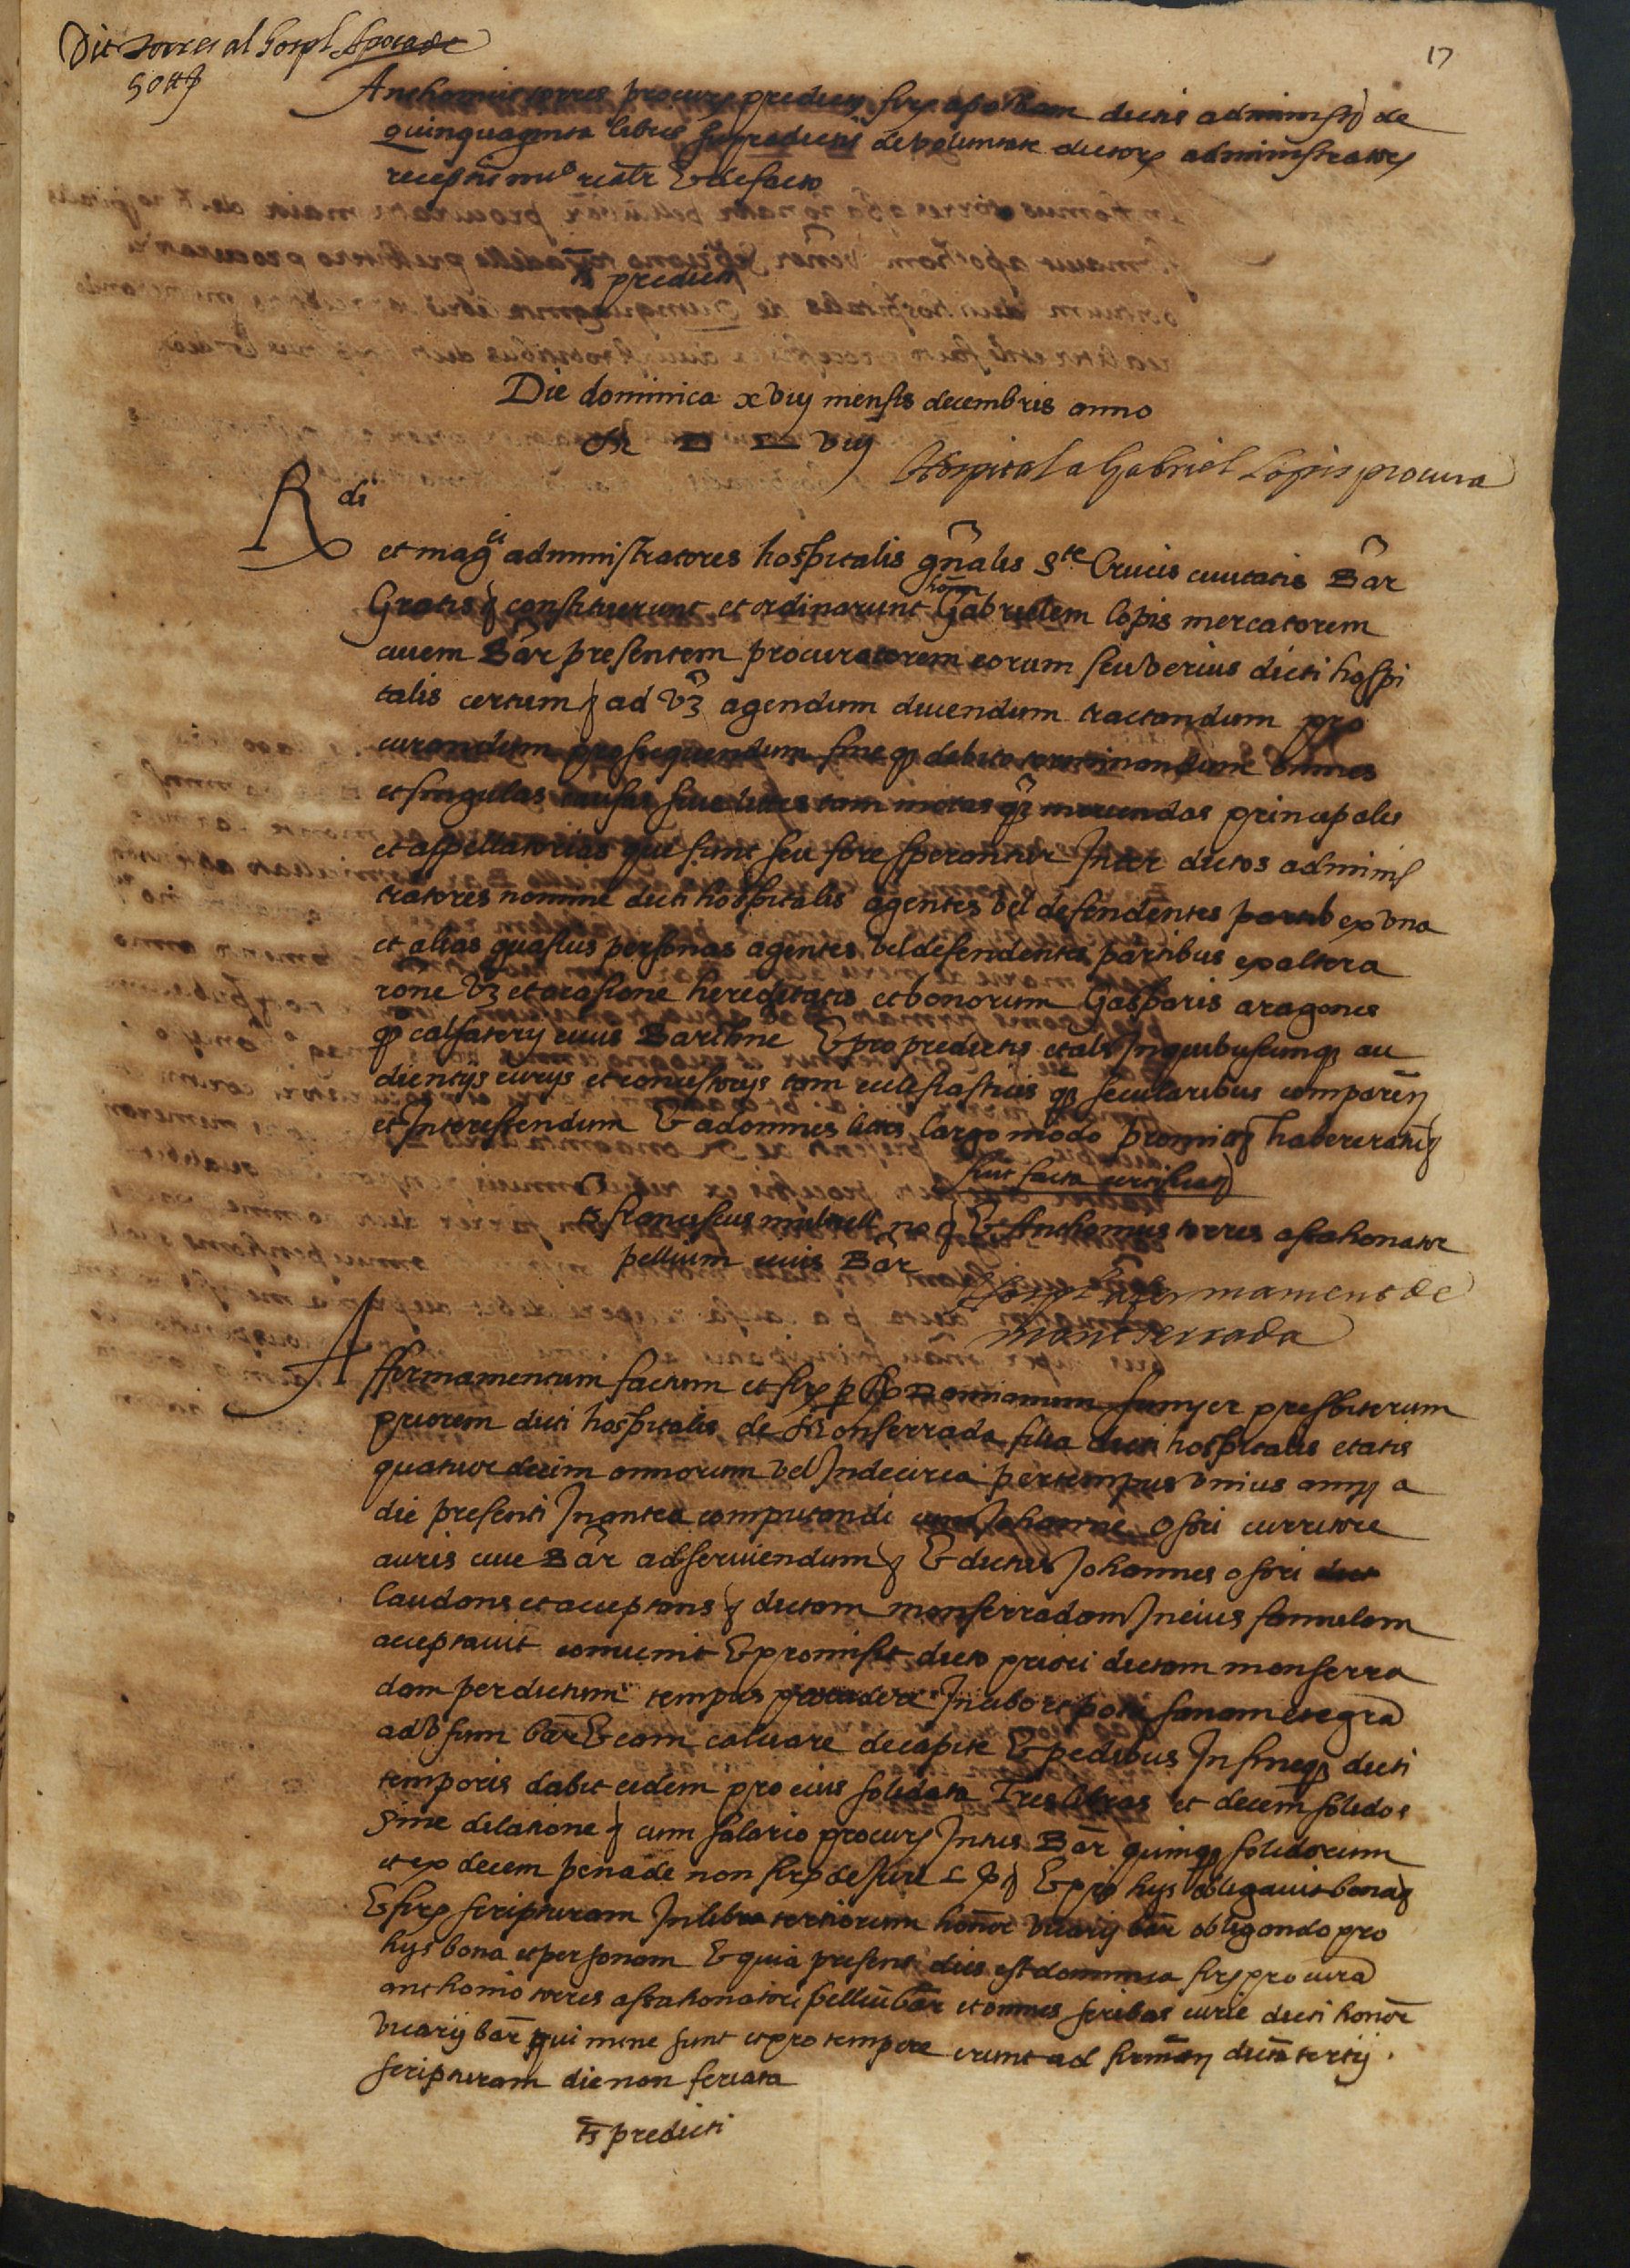 Dit torres al hospl Apoca de
50 ₶
17
Anthonius torres procurͬ predictͥ firͭ apocham dictis administͬ de
quinquaginta libris supradictis de voluntate dictorͫ administratorͫ
receptis mͦ realr Et de facto
ts predicti
Die dominica xviij mensis decembris anno
M D L viij
Hospital a Gabriel Lopis procura
R di
et magci administratores hospitalis gñalis Ste Crucis civitatis Bar
Gratis &c constituerunt et ordinarunt honor Gabrielem lopis mercatorem
civem Bar presentem procuratorem eorum seu verius dicti hospi
talis certum &c ad vz agendum ducendum tractandum pro
curandum prosequendum fine q debito terminandum omnes
et singulas causas sive lites tam motas q movendas principales
et appellatorias que sunt seu fore sperantur Inter dictos adminis
tratores nomine dicti hospitalis agentes vel defendentes partib ex una
et alias quasvis personas agentes vel defendentes partibus ex altera
rone vz et occasione hereditatis et bonorum Gasparis aragones
q calsaterij civis Barchne Et pro predictis et aliis In quibuscunq au
dientijs curijs et concistorijs tam ecclesiasticis q secularibus comparen
et Interessendum Et ad omnes lites largo modo promitt &c habere ratu &c
fuit facta certificat
ts franciscus mulnell no &c Et Anthonius torres assahonator
pellium civis Bar
Hospl afermament de
montserrada
Affermamentum factum et firͭ p Rm Damianum Junyer presbiterum
priorem dicti hospitalis de Monserrada filia dicti hospitalis etatis
quatuordecim annorum vel Inde circa per tempus unius anni a
die presenti In antea computandi cum Johanne osori curritore
auris cive Bar ad serviendum &c Et dictus Johannes osori dict
laudans et acceptans &c dictam monserradam In eius famulam
acceptavit convenit Et promisit dicto priori dictam monserra
dam per dictum tempus providere In cibo et potu sanam et egra
ad usum bar Et eam calciare de capite Et pedibus In fineq dicti
temporis dabit eidem pro eius solidata Tres libras et decem solidos
Sine dilatione &c cum salario procurͬ Intus Bar quinq solidorum
et ex decem pena de non firͫ de jure L s &c Et pro hijs obligavit bona &c
Et firͭ scripturam In libro tertiorum honor vicarij bar obligando pro
hijs bona et personam Et quia presens dies est dominica firͭ procura
anthonio torres assahonatori pelliu bar et omnes scribas curie dicti honor
vicarij bar qui nunc sunt et pro tempore erunt ad firman dicta tertij
scripturam die non feriata
ts predicti